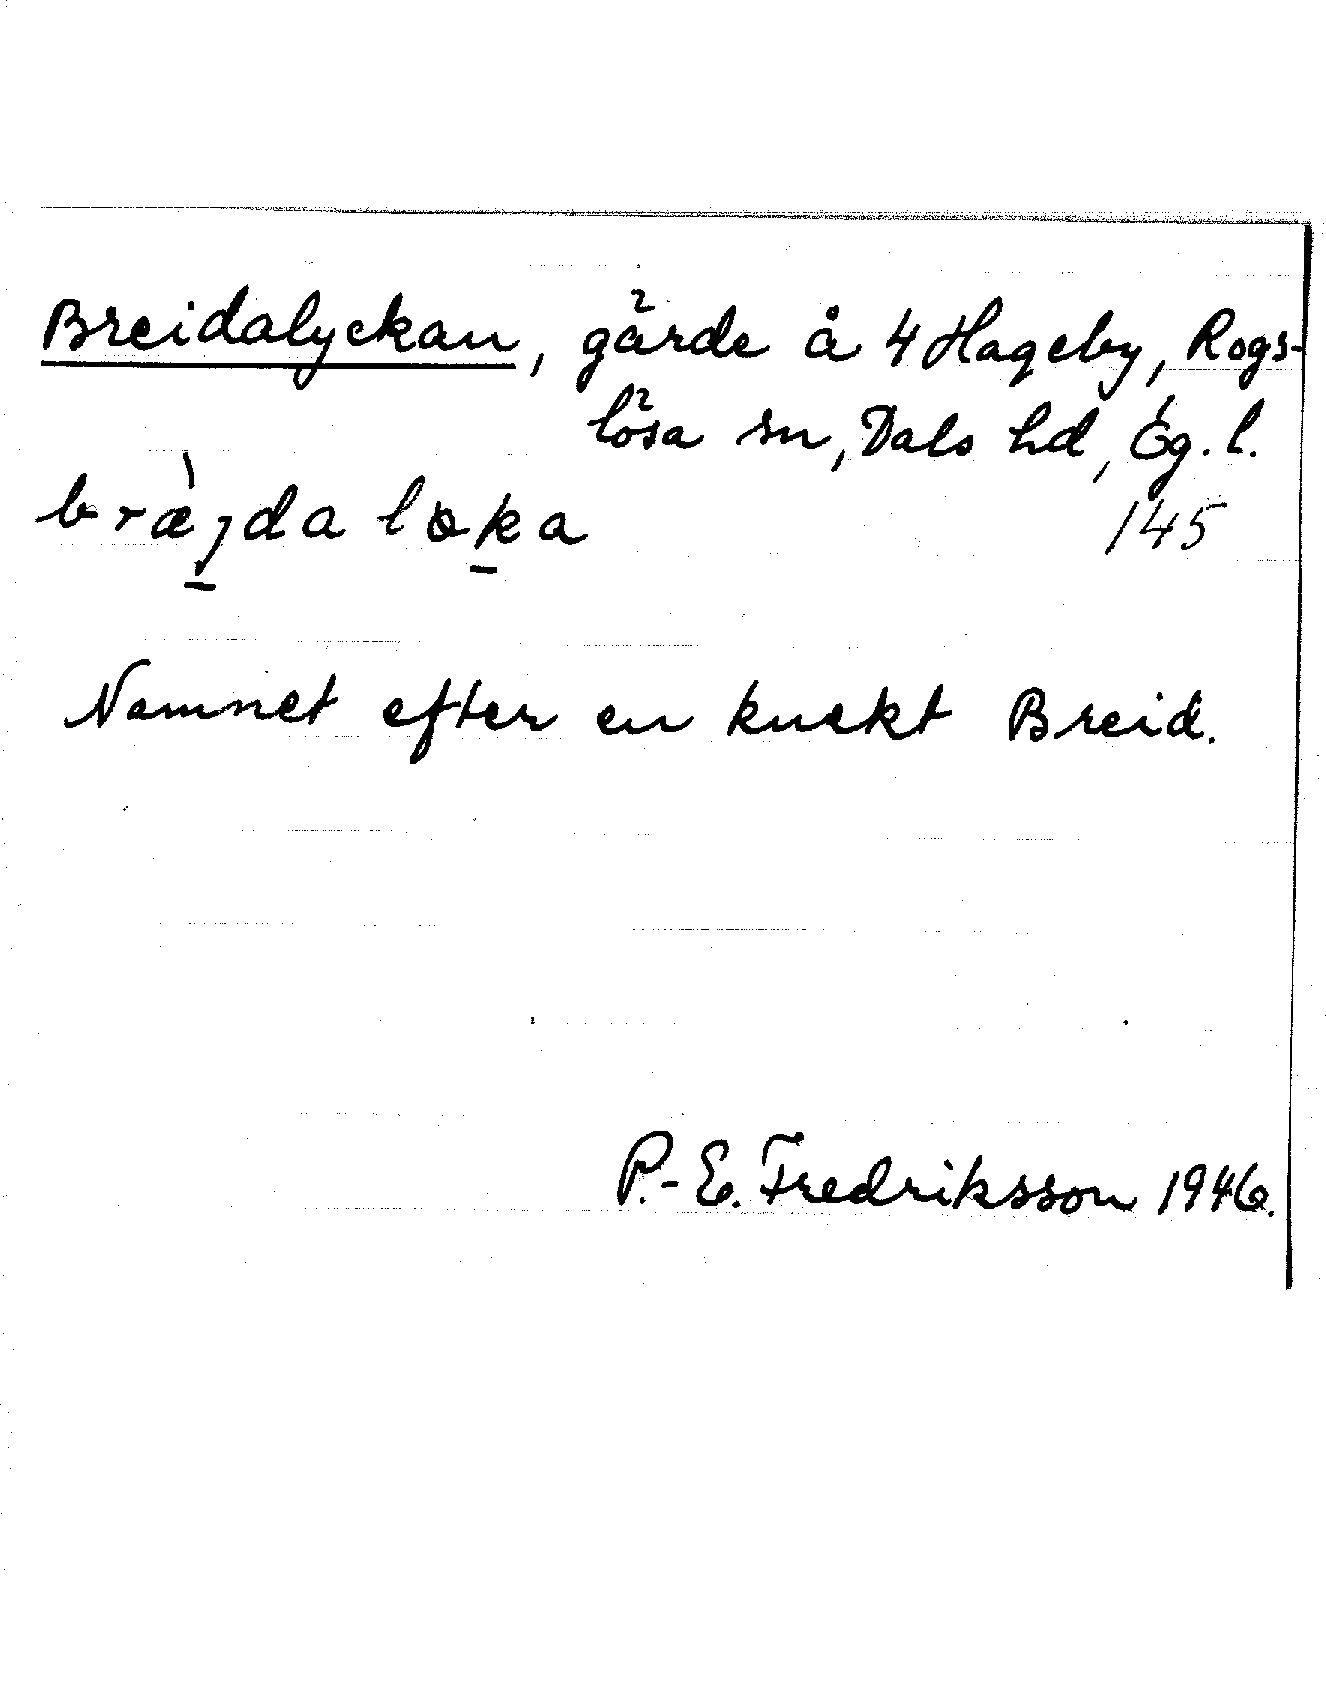 Breidalyckan, gärde å 4 Hageby, Rogs-
lösa sn, Dals hd, Ög. l.
bræ̀jda lɵka 145
Namnet efter en knekt Breid.
P.-E. Fredriksson 1946.